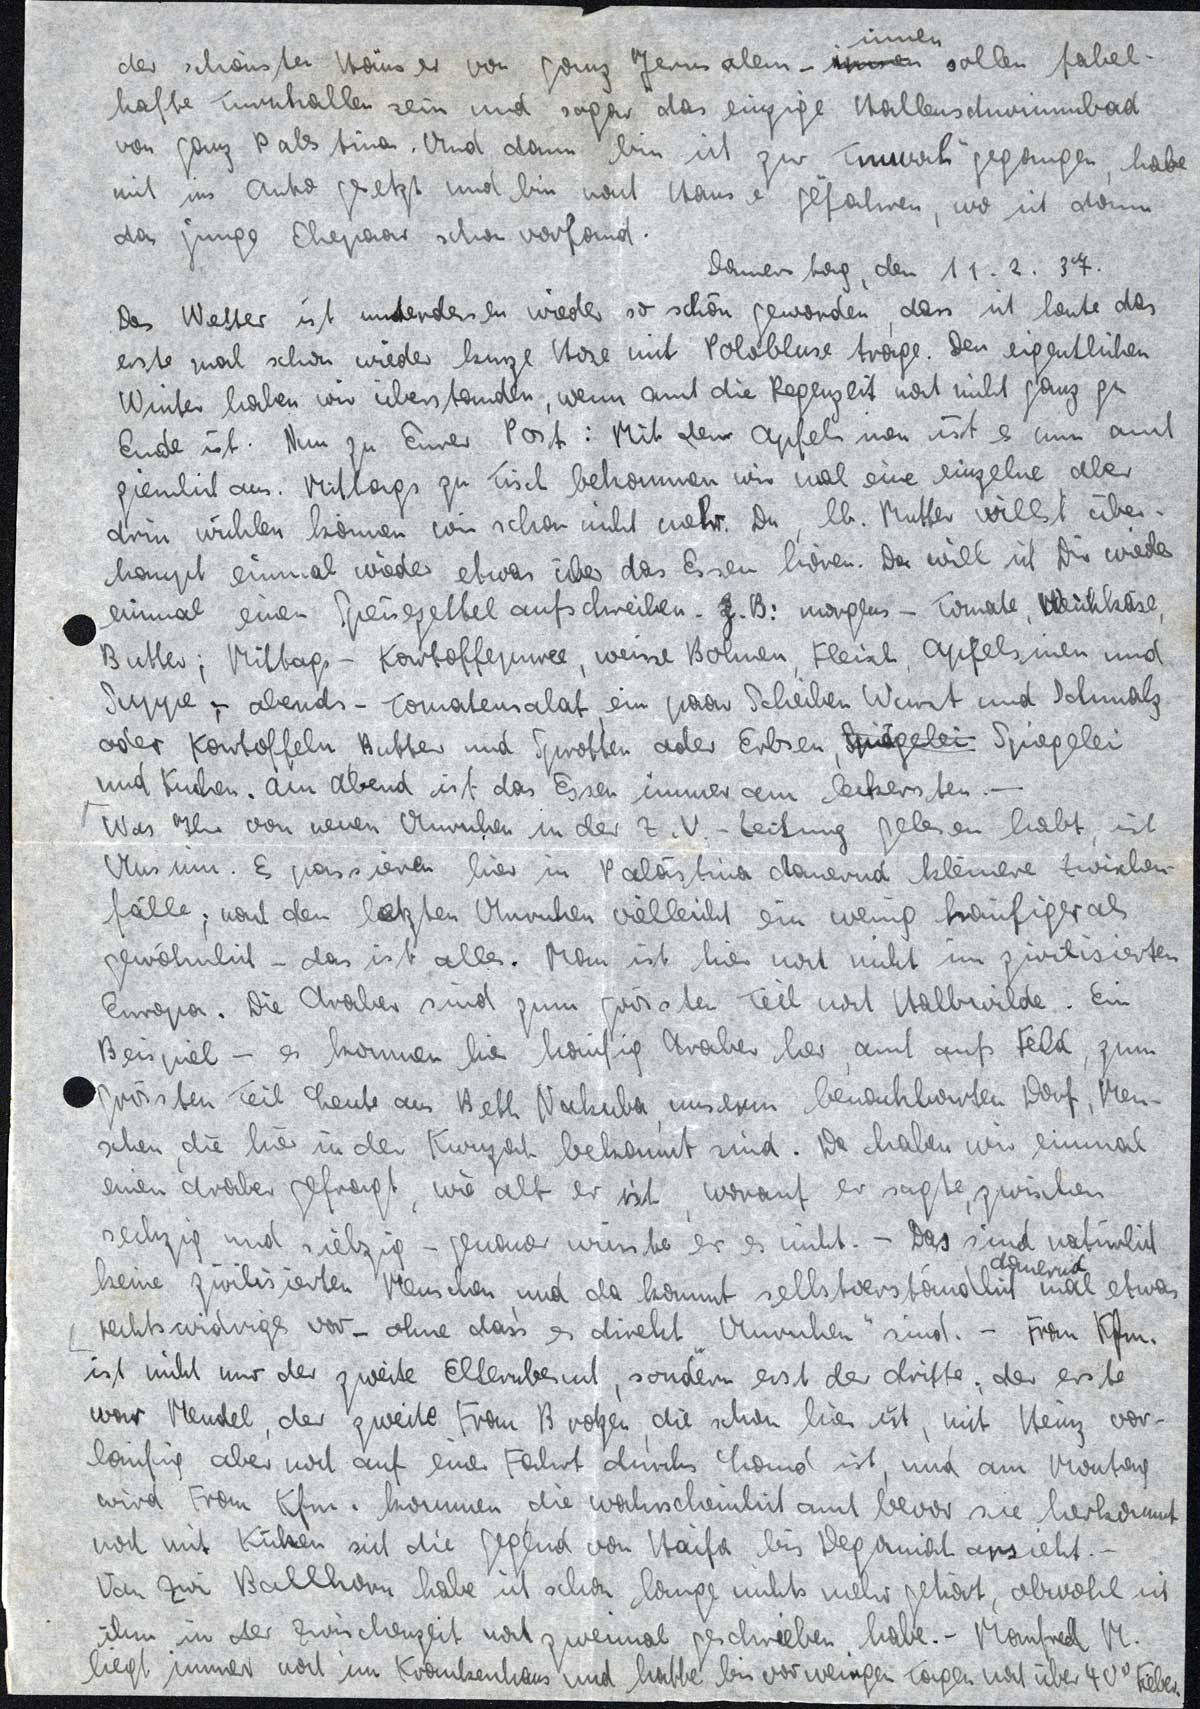 der schönsten Häuser von ganz Jerusalem - innen sollen fabel-
hafte Turnhallen sein und sogar das einzige Hallenschwimmbad
von ganz Palästina. Und dann bin ich zur "Tnuvah" gegangen, habe
mich ins Auto gesetzt und bin nach Hause gefahren, wo ich dann
das junge Ehepaar schon vorfand.
Donnerstag, den 11.2.37.
Das Wetter ist unterdessen wieder so schön geworden, dass ich heute das
erste mal schon wieder kurze Hose mit Polobluse trage. Den eigentlichen
Winter haben wir überstanden, wenn auch die Regenzeit noch nicht ganz zu
Ende ist. Nun zu Eurer Post: Mit den Apfelsinen ist es nun auch
ziemlich aus. Mittags zu Tisch bekommen wir mal eine einzelne aber
drin wühlen können wir schon nicht mehr. Du, lb. Mutter willst über-
haupt einmal wieder etwas über das Essen hören. Da will ich Dir wieder
einmal einen Speisezettel aufschreiben. Z.B: morgens - Tomate, Weichkäse,
Butter; Mittags - Kartoffepuree, weisse Bohnen, Fleisch, Apfelsinen und
Suppe; - abends - Tomatensalat, ein paar Scheiben Wurst und Schmalz
oder Kartoffeln Butter und Sprotten oder Erbsen, Spiegelei Spiegelei
und Kuchen. Am Abend ist das Essen immer am leckersten. -
Was Ihr von neuen Unruhen in der Z.V.-Zeitung gelesen habt, ist
Unsinn. Es passieren hier in Palästina dauernd kleinere Zwischen-
fälle; nach den letzten Unruhen vielleicht ein wenig häufiger als
gewöhnlich - das ist alles. Man ist hier noch nicht im zivilisierten
Europa. Die Araber sind zum grössten Teil noch Halbwilde. Ein
Beispiel - es kommen hier häufig Araber her, auch aufs Feld, zum
grössten Teil Leute aus Beth Nakuba, unserm benachbarten Dorf, Men-
schen, die hier in der Kwuzah bekannt sind. Da haben wir einmal
einen Araber gefragt, wie alt er ist, worauf er sagte, zwischen
sechzig und siebzig - genauer wüsste er es nicht. - Das sind natürlich
keine zivilisierten Menschen und da kommt selbstverständlich dauernd mal etwas
rechtswidriges vor - ohne dass es direkt "Unruhen" sind. - Frau Kfm.
ist nicht nur der zweite Elternbesuch, sondern erst der dritte; der erste
war Mendel, der zweite Frau Brotzen, die schon hier ist, mit Heinz vor-
läufig aber noch auf einer Fahrt durchs Land ist, und am Montag
wird Frau Kfm. kommen, die wahrscheinlich auch bevor sie herkommt
noch mit Küken sich die Gegend von Haifa bis Deganiah ansieht. -
Von Zwi Ballhorn habe ich schon lange nichts mehr gehört, obwohl ich
ihm in der Zwischenzeit noch zweimal geschrieben habe. - Manfred M.
liegt immer noch im Krankenhaus und hatte bis vor wenigen Tagen noch über 40° Fieber.